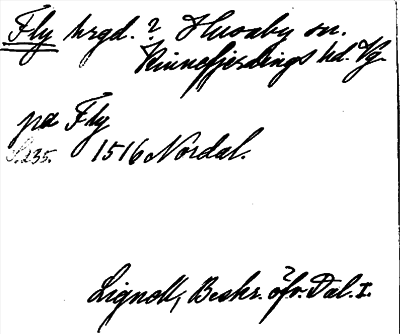 Fly hrgd. ? Husaby sn.
Kinnefjerdings hd. Vg.
på Fly
S. 235. 1516 Nordal.
Lignell, Beskr. öfv. Dal. I.